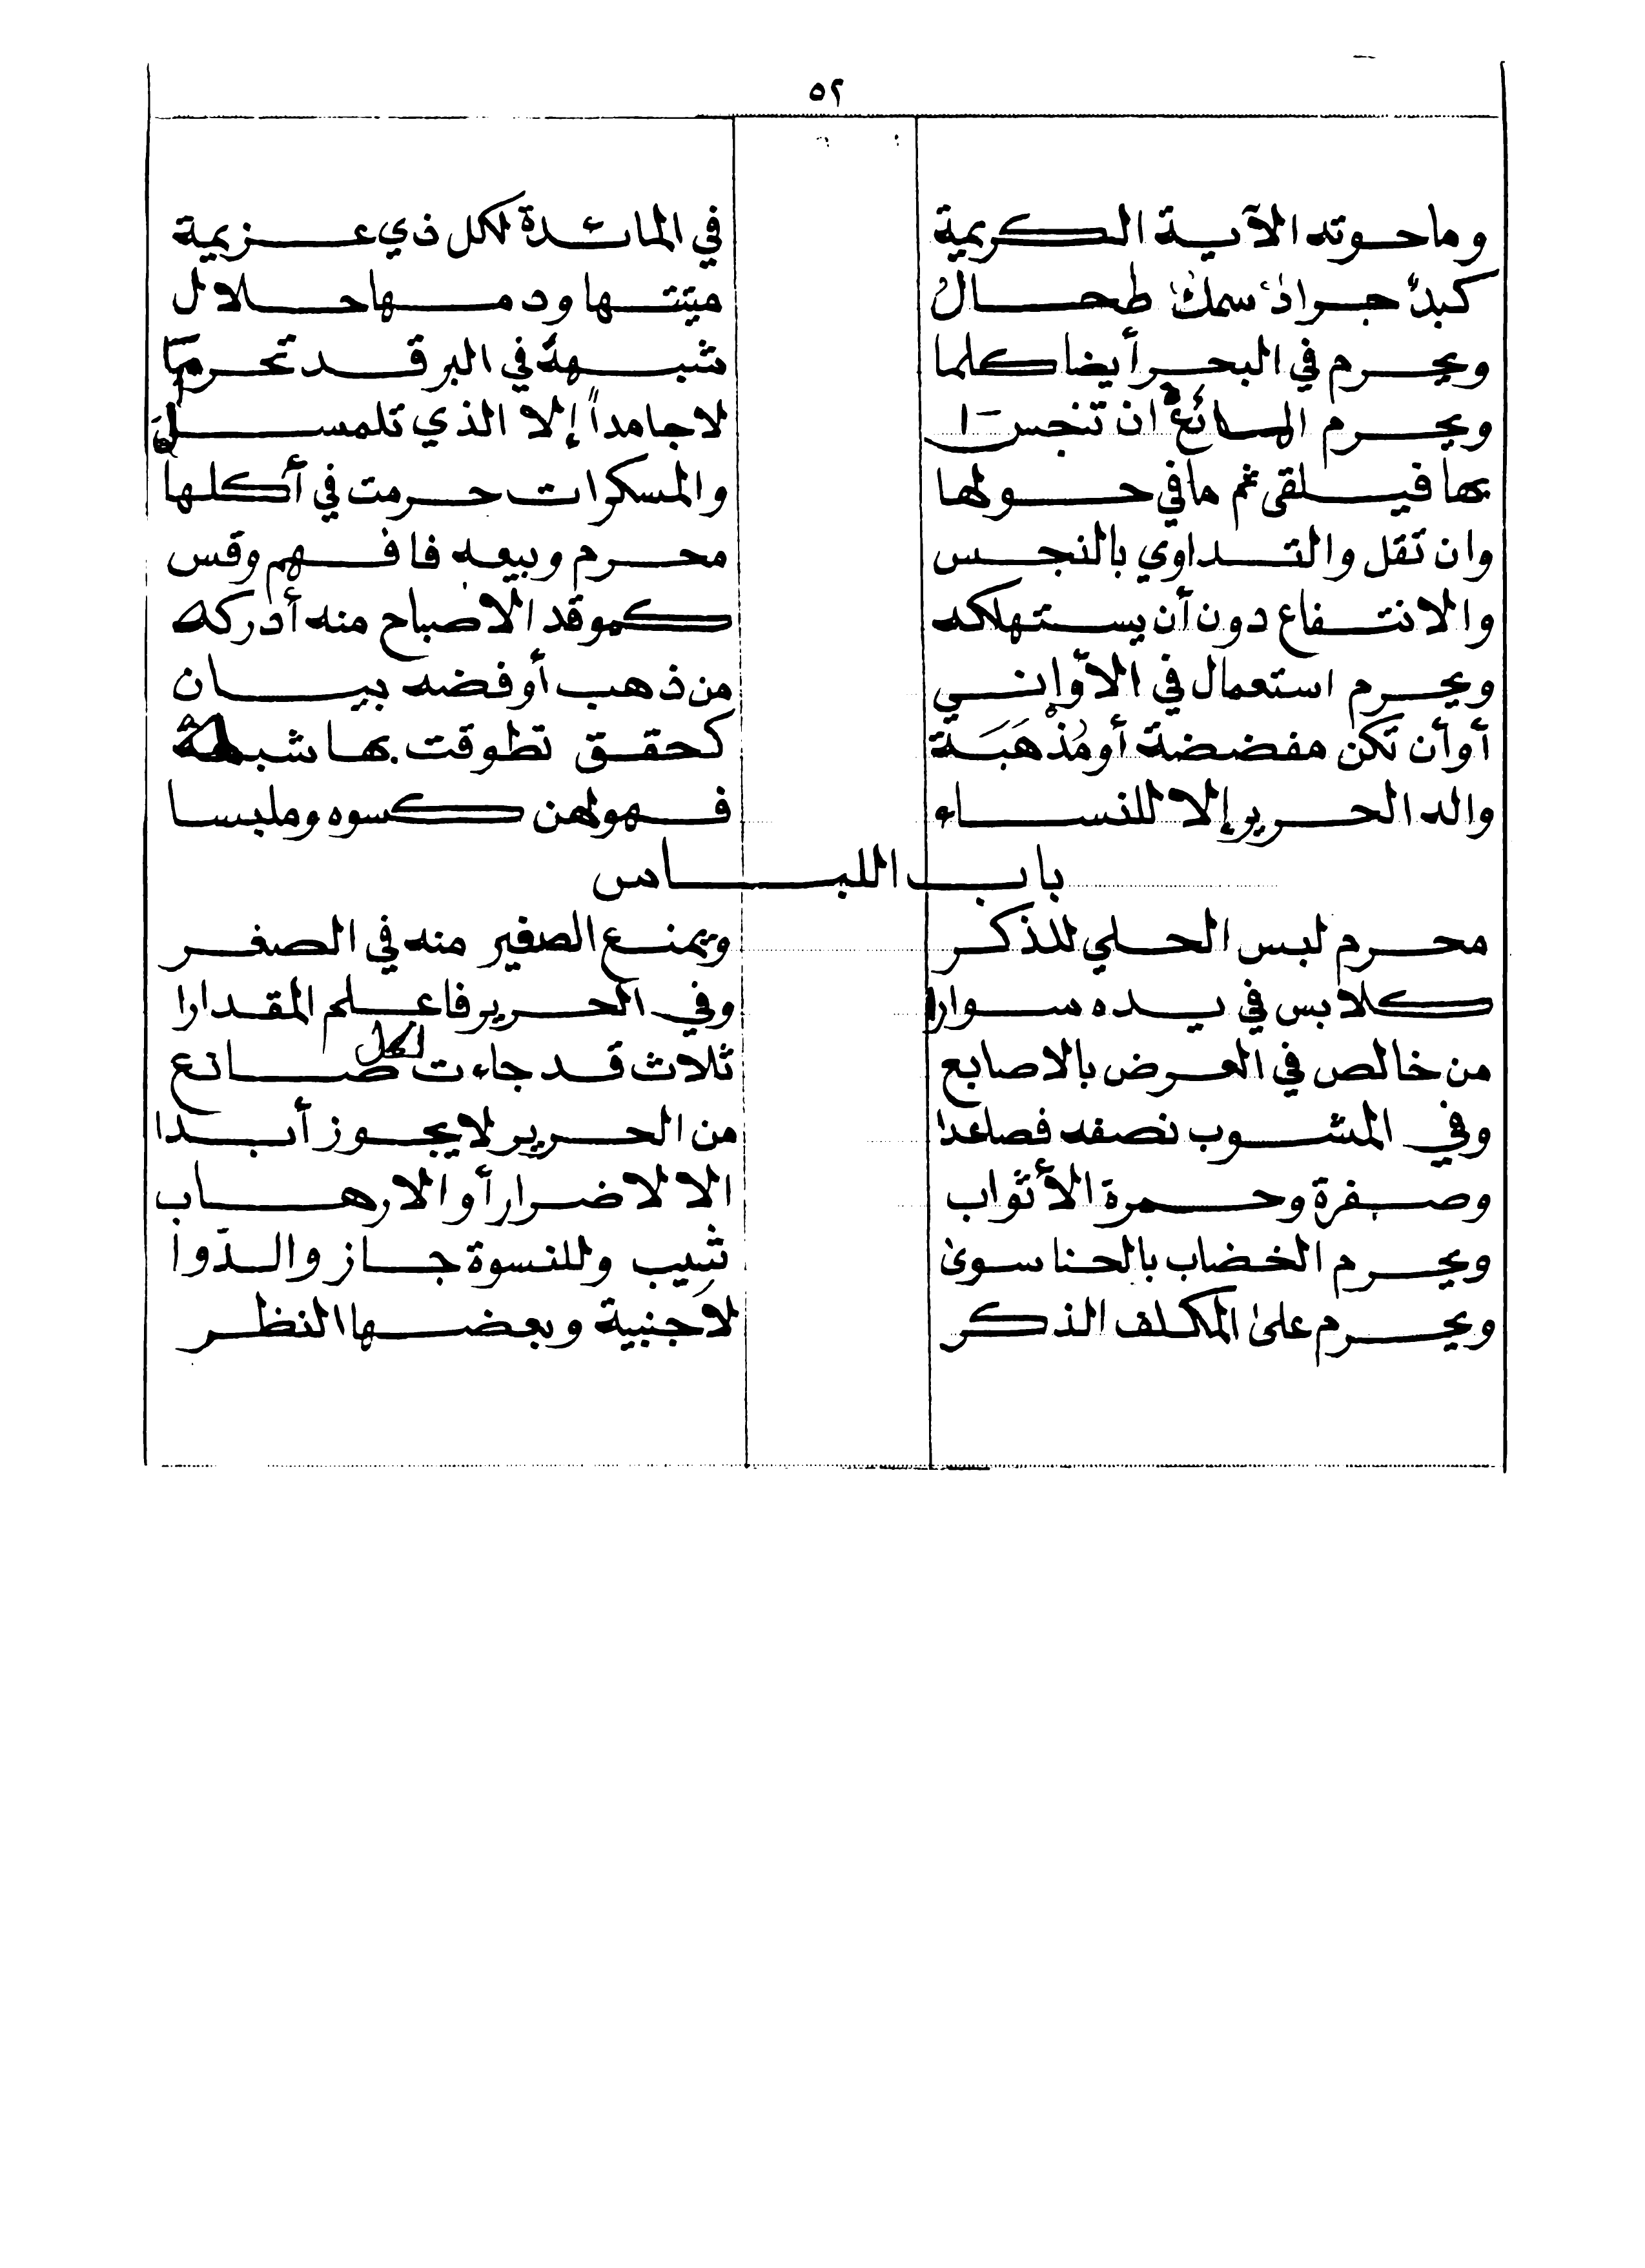 ٥٢
وما حوته الآية الكريمة في المائدة لكل ذي عزيمة
كبدٌ جرادٌ سمكٌ طحالُ ميتتها ودمها حلال
ويحرم في البحر أيضا كلما شبهه في البر قد تحرما
ويحرم المائع ان تنجسا لا جامداً إلا الذي تلمس
بها فيلقى ثم ما في حولها والمسكرات حرمت في أكلها
وان تقل والتداوي بالنجس محرم وبيعه فافهم وقس
والانتفاع دون أن يستهلكه كموقد الاصباح منه أدركه
ويحرم استعمال في الأواني من ذهب أو فضه بيان
أو أن تكن مفضضة أو مُذْهَبَة كحقق تطوقت بها
واله الحرير إلا للنساء فهو لهن كسوه وملبسا
باب اللباس
محرم لبس الحلي للذكر ويمنع الصغير منه في الصغر
كلابس في يده سوارا وفي الحرير فاعلم المقدارا
من خالص في العرض بالاصابع ثلاث قد جاءت لكل صانع
وفي المشوب نصفه فصاعدا من الحرير لا يجوز أبدا
وصفرة وحمرة الأثواب الا لاضرار أو الارهاب
ويحرم الخضاب بالحنا سوى شيب وللنسوة جاز والدّوا
ويحرم على المكلف الذكر لأجنبية وبعضها النظر